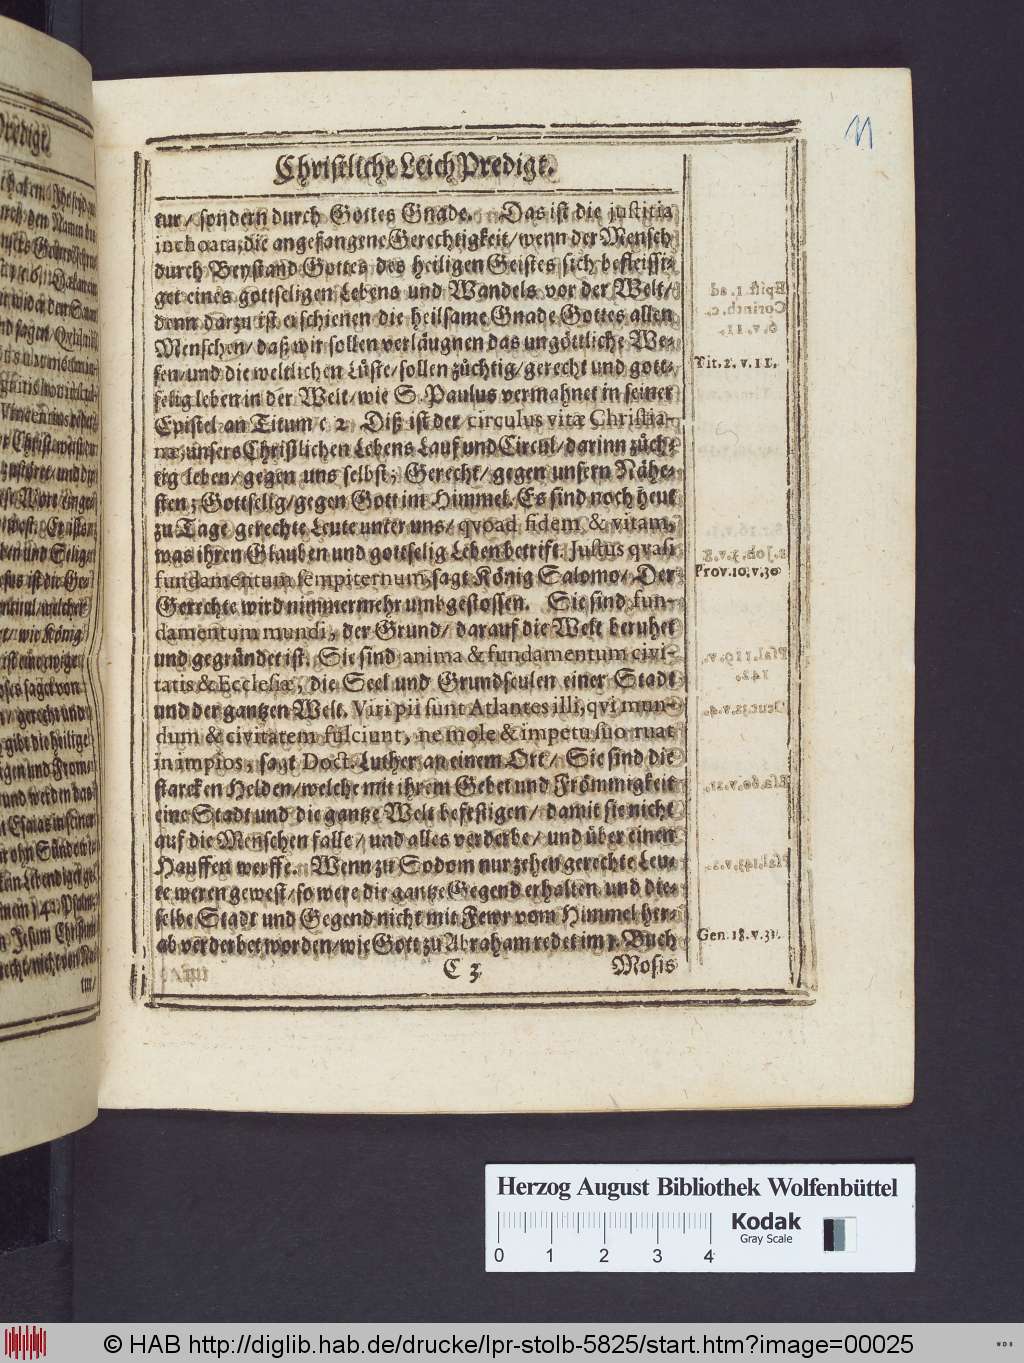 Christliche LeichPredigt.
11
tur/ sondern durch Gottes Gnade. Das ist die justitia
inchoata, die angefangene Gerechtigkeit/ wenn der Mensch
durch Beystand Gottes des heiligen Geistes sich befleissi-
get eines gottseligen Lebens und Wandels vor der Welt/
denn darzu ist erschienen die heilsame Gnade Gottes allen
Menschen/ daß wir sollen verläugnen das ungöttliche We-
sen/ und die weltlichen Lüste/ sollen züchtig/ gerecht und gott-
selig leben in der Welt/ wie S. Paulus vermahnet in seiner
Epistel an Titum c 2. Diß ist der circulus vitæ Christia-
næ, unsers Christlichen Lebens Lauf und Circul/ darinn züch-
tig leben/ gegen uns selbst; Gerecht/ gegen unsern Nähe-
sten; Gottselig/ gegen Gott im Himmel. Es sind noch heut
zu Tage gerechte Leute unter uns/ qvoad fidem & vitam,
was ihren Glauben und gottselig Leben betrift. Justus qvasi
fundamentum sempiternum, sagt König Salomo/ Der
Gerechte wird nimmermehr umbgestossen. Sie sind fun-
damentum mundi, der Grund/ darauf die Welt beruhet
und gegründet ist. Sie sind anima & fundamentum civi-
tatis & Ecclesiæ, die Seel und Grundseulen einer Stadt
und der gantzen Welt. Viri pii sunt Atlantes illi, qvi mun-
dum & civitatem fulciunt, ne mole & impetu suo ruat
in impios, sagt Doct. Luther an einem Ort/ Sie sind die
starcken Helden/ welche mit ihrem Gebet und Frömmigkeit
eine Stadt und die gantze Welt befestigen/ damit sie nicht
auf die Menschen falle/ und alles verderbe/ und über einen
Hauffen werffe. Wenn zu Sodom nur zehen gerechte Leu-
te weren gewest/ so were die gantze Gegend erhalten, und die-
selbe Stadt und Gegend nicht mit Fewr vom Himmel her-
ab verderbet worden/ wie Gott zu Abraham redet im 1. Buch
C 3
Mosis
Tit. 2. v. 11.
Prov. 10. v. 30
Gen. 18. v. 32.
Herzog August Bibliothek Wolfenbüttel
Kodak
Gray Scale
0 1 2 3 4
© HAB http://diglib.hab.de/drucke/lpr-stolb-5825/start.htm?image=00025